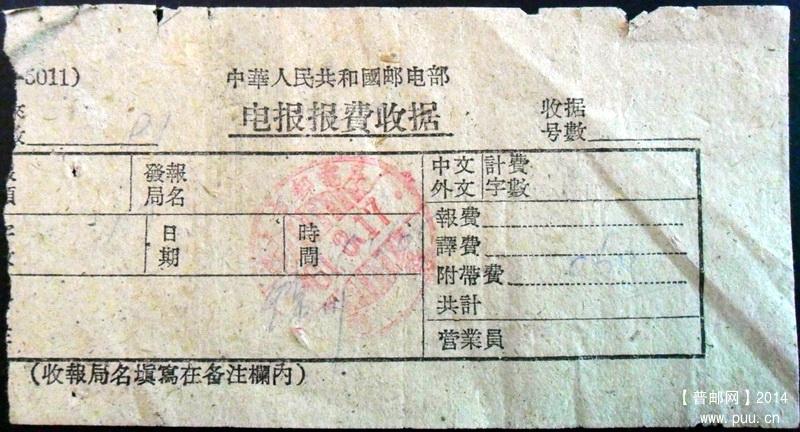 5011)
中華人民共和國邮电部
电报报費收据
收据
号數
發報
局名
中文
外文
計費
字數
報費
日
期
時
間
譯費
附帶費
共計
营業員
(收報局名填寫在备注欄内)
8.17
【普邮网】2014
www.puu.cn